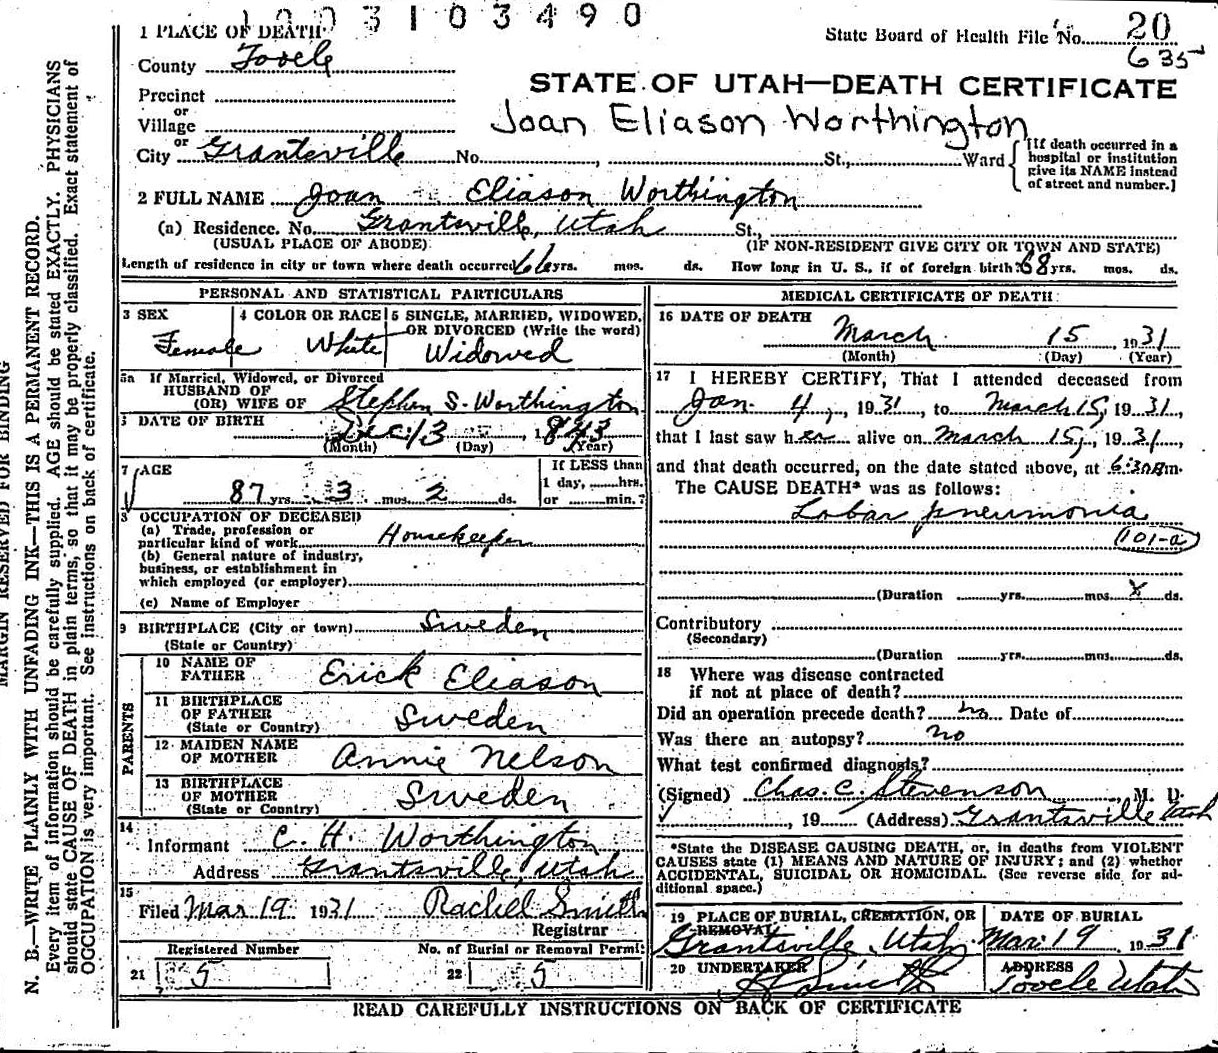 1003103490
1 PLACE OF DEATH
State Board of Health File No. 20
County Tooele
635
STATE OF UTAH—DEATH CERTIFICATE
Precinct
or
Village
Joan Eliason Worthington
or
City Grantsville No. , St., Ward
[If death occurred in a
hospital or institution
give its NAME instead
of street and number.]
2 FULL NAME Joan Eliason Worthington
(a) Residence. No. Grantsville, Utah St.,
(USUAL PLACE OF ABODE) (IF NON-RESIDENT GIVE CITY OR TOWN AND STATE)
Length of residence in city or town where death occurred 66 yrs. mos. ds. How long in U. S., if of foreign birth? 68 yrs. mos. ds.
PERSONAL AND STATISTICAL PARTICULARS
3 SEX 4 COLOR OR RACE 5 SINGLE, MARRIED, WIDOWED,
OR DIVORCED (Write the word)
Female White Widowed
5a If Married, Widowed, or Divorced
HUSBAND OF
(OR) WIFE OF Stephen S. Worthington
6 DATE OF BIRTH Dec 13, 1843
(Month) (Day) (Year)
7 AGE If LESS than
1 day, hrs.
87 yrs. 3 mos. 2 ds. or min.?
8 OCCUPATION OF DECEASED
(a) Trade, profession or
particular kind of work Housekeeper
(b) General nature of industry,
business, or establishment in
which employed (or employer)
(c) Name of Employer
9 BIRTHPLACE (City or town) Sweden
(State or Country)
PARENTS
10 NAME OF
FATHER Erick Eliason
11 BIRTHPLACE
OF FATHER Sweden
(State or Country)
12 MAIDEN NAME
OF MOTHER Annie Nelson
13 BIRTHPLACE
OF MOTHER Sweden
(State or Country)
14
Informant C. H. Worthington
Address Grantsville, Utah
15
Filed Mar 19 1931 Rachel Smith
Registrar
Registered Number No. of Burial or Removal Permit
21 5 22 5
MEDICAL CERTIFICATE OF DEATH
16 DATE OF DEATH
March 15, 1931
(Month) (Day) (Year)
17 I HEREBY CERTIFY, That I attended deceased from
Jan. 4, 1931, to March 15, 1931,
that I last saw her alive on March 15, 1931,
and that death occurred, on the date stated above, at 6:30 am.
The CAUSE DEATH* was as follows:
Lobar pneumonia
101-a
(Duration yrs. mos. x ds.
Contributory
(Secondary)
(Duration yrs. mos. ds.
18 Where was disease contracted
if not at place of death?
Did an operation precede death? no Date of
Was there an autopsy? no
What test confirmed diagnosis?
(Signed) Chas. C. Stevenson, M. D.
, 19 (Address) Grantsville Utah
*State the DISEASE CAUSING DEATH, or, in deaths from VIOLENT
CAUSES state (1) MEANS AND NATURE OF INJURY; and (2) whether
ACCIDENTAL, SUICIDAL OR HOMICIDAL. (See reverse side for ad-
ditional space.)
19 PLACE OF BURIAL, CREMATION, OR
REMOVAL
DATE OF BURIAL
Grantsville, Utah Mar. 19 1931
20 UNDERTAKER ADDRESS
Smith Tooele Utah
READ CAREFULLY INSTRUCTIONS ON BACK OF CERTIFICATE
MARGIN RESERVED FOR BINDING
N. B.—WRITE PLAINLY WITH UNFADING INK—THIS IS A PERMANENT RECORD.
Every item of information should be carefully supplied. AGE should be stated EXACTLY. PHYSICIANS
should state CAUSE OF DEATH in plain terms, so that it may be properly classified. Exact statement of
OCCUPATION is very important. See instructions on back of certificate.